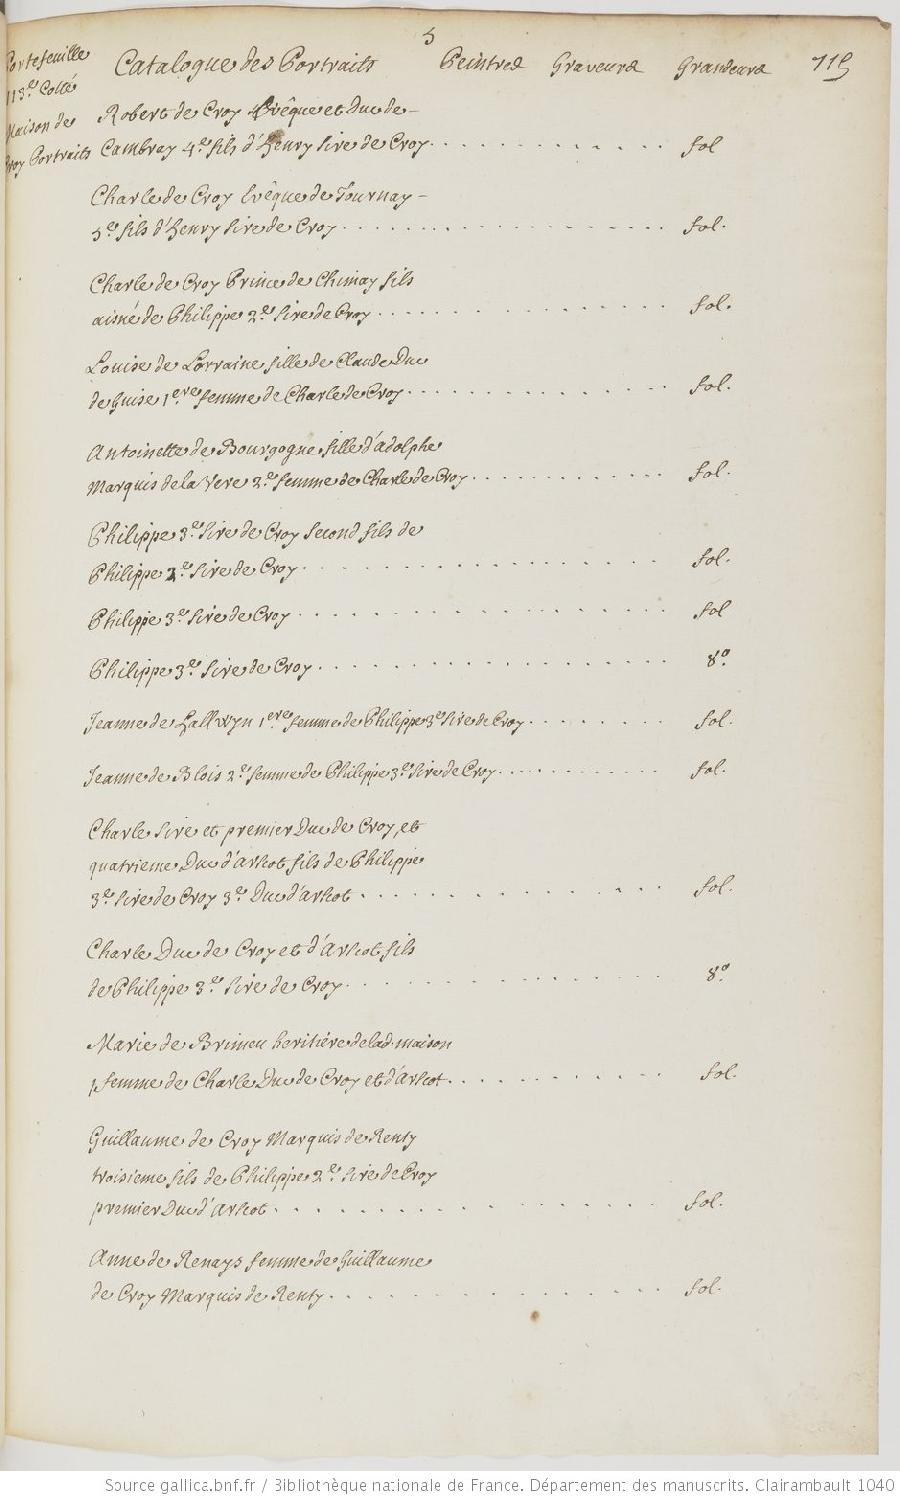 5
Portefeuille Catalogue des Portraits Peintres Graveurs Grandeurs 715
113e Cotté
Maison de Robert de Croy Evêque et Duc de
Croy Portraits Cambray 4e fils d'Henry Sire de Croy. fol
Charle de Croy Evêque de Tournay
5e fils d'Henry Sire de Croy. fol.
Charle de Croy Prince de Chimay fils
aisné de Philippe 2e Sire de Croy fol.
Louise de Lorraine fille de Claude Duc
de Guise 1ere femme de Charle de Croy. fol.
Antoinette de Bourgogne fille d'adolphe
Marquis de la Vere 2e femme de Charle de Croy fol.
Philippe 3e Sire de Croy Second fils de
Philippe 2e Sire de Croy. fol.
Philippe 3e Sire de Croy fol
Philippe 3e Sire de Croy 8o.
Jeanne de Hallwyn 1ere femme de Philippe 3e Sire de Croy fol.
Jeanne de Blois 2e femme de Philippe 3e Sire de Croy. fol.
Charle Sire et premier Duc de Croy, et
quatrieme Duc d'arscot fils de Philippe
3e Sire de Croy 3e Duc d'arscot fol.
Charle Duc de Croy et d'Arscot fils
de Philippe 3e Sire de Croy. 8o.
Marie de Brimeu heritiére de lad. maison
femme de Charle Duc de Croy et d'Arscot. fol.
Guillaume de Croy Marquis de Renty
troisieme fils de Philippe 2e Sire de Croy
premier Duc d'arscot. fol.
Anne de Renays femme de Guillaume
de Croy Marquis de Renty. fol.
Source gallica.bnf.fr / Bibliothèque nationale de France. Département des manuscrits. Clairambault 1040